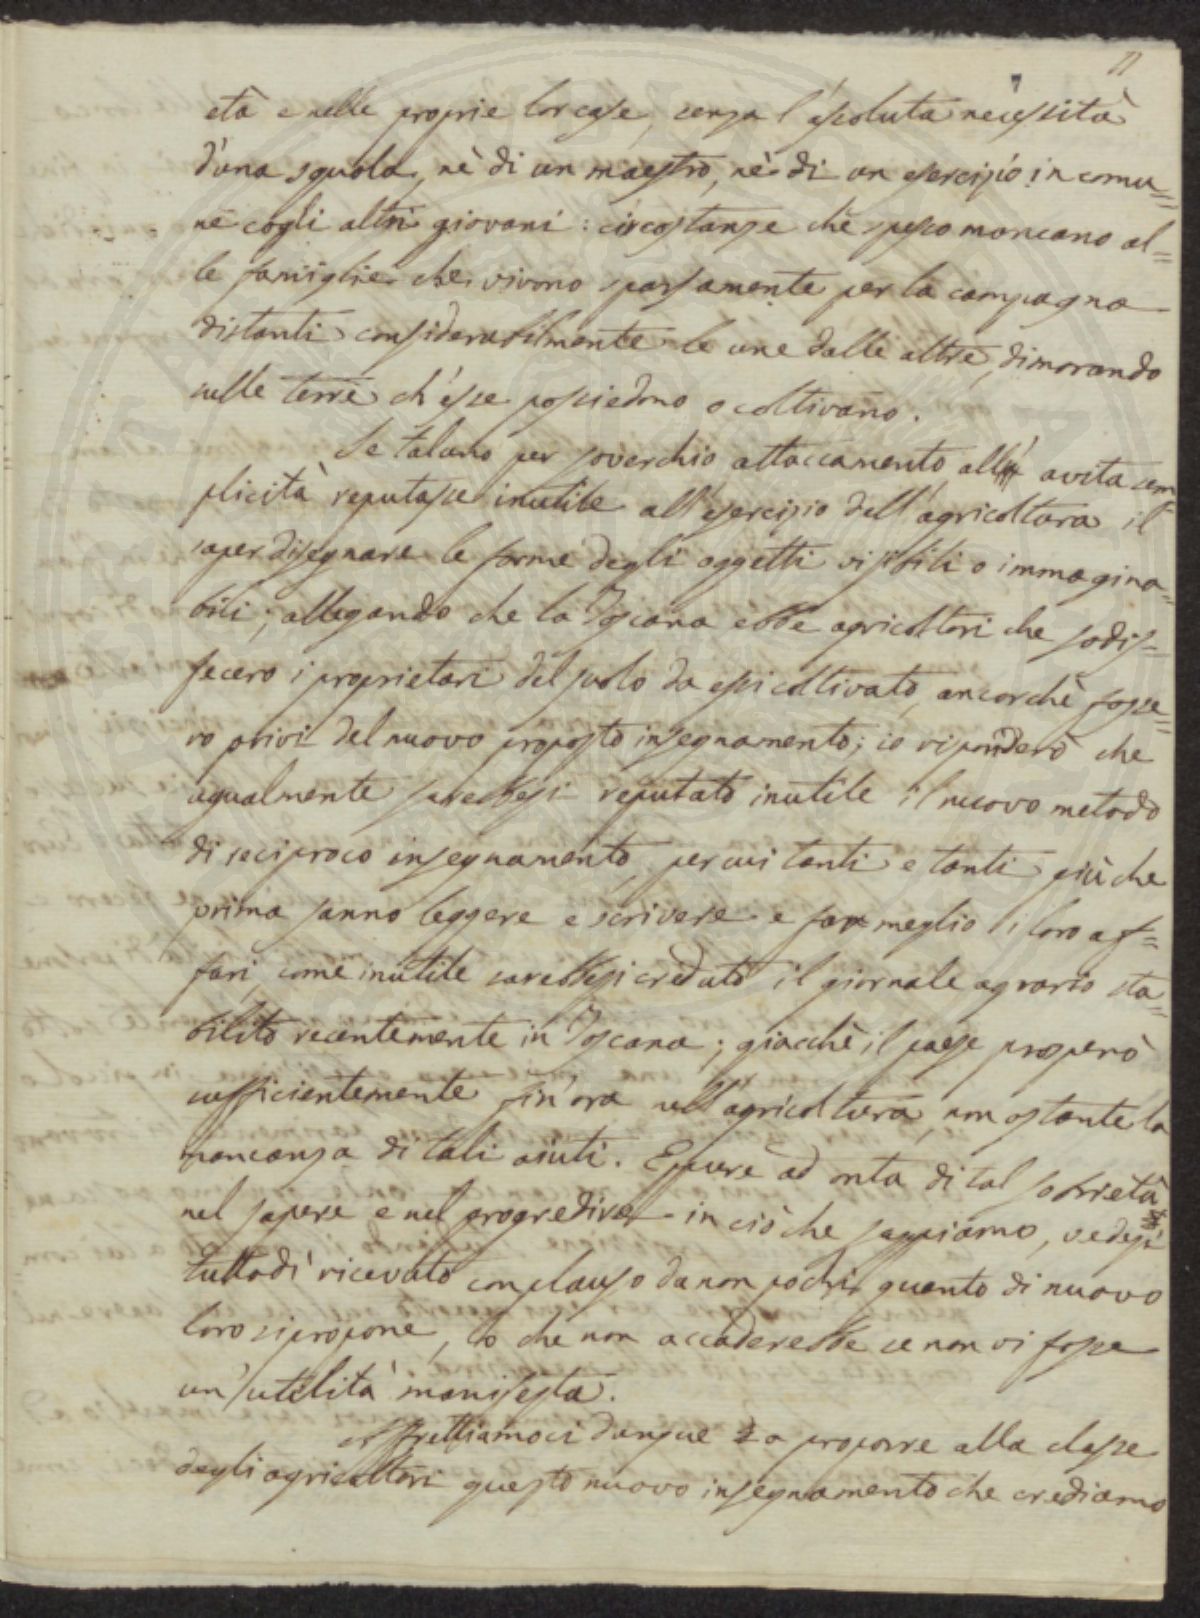 11
7
età e nelle proprie lor case, senza l'assoluta necessità
d'una squola, nè di un maestro, nè di un esercizio in comu=
ne cogli altri giovani: circostanze che spesso mancano al=
le famiglie che vivono sparsamente per la campagna
distanti considerabilmente le une dalle altre, dimorando
sulle terre ch'esse possiedono o coltivano.
Se taluno per soverchio attaccamento all' avita sem=
plicità reputasse inutile all'esercizio dell'agricoltura il
saper disegnare le forme degli oggetti visibili o immagina=
bili; allegando che la Toscana ebbe agricoltori che sodis=
fecero i proprietari del suolo da essi coltivato, ancorchè fosse=
ro privi del nuovo proposto insegnamento; io risponderò che
ugualmente sarebbesi reputato inutile il nuovo metodo
di reciproco insegnamento, per cui tanti e tanti più che
prima sanno leggere e scrivere e far meglio i loro af=
fari, come inutile sarebbesi creduto il giornale agrario sta=
bilito recentemente in Toscana; giacchè il paese prosperò
sufficientemente fin'ora nell'agricoltura, non ostante la
mancanza di tali aiuti. Eppure ad onta di tal sobrietà
nel sapere e nel progredire in ciò che sappiamo, vedesi
tuttodì ricevuto con plauso da non pochi quanto di nuovo
loro si propone, lo che non accaderebbe se non vi fosse
un'utilità manifesta.
Affrettiamoci dunque a proporre alla classe
degli agricoltori questo nuovo insegnamento che crediamo